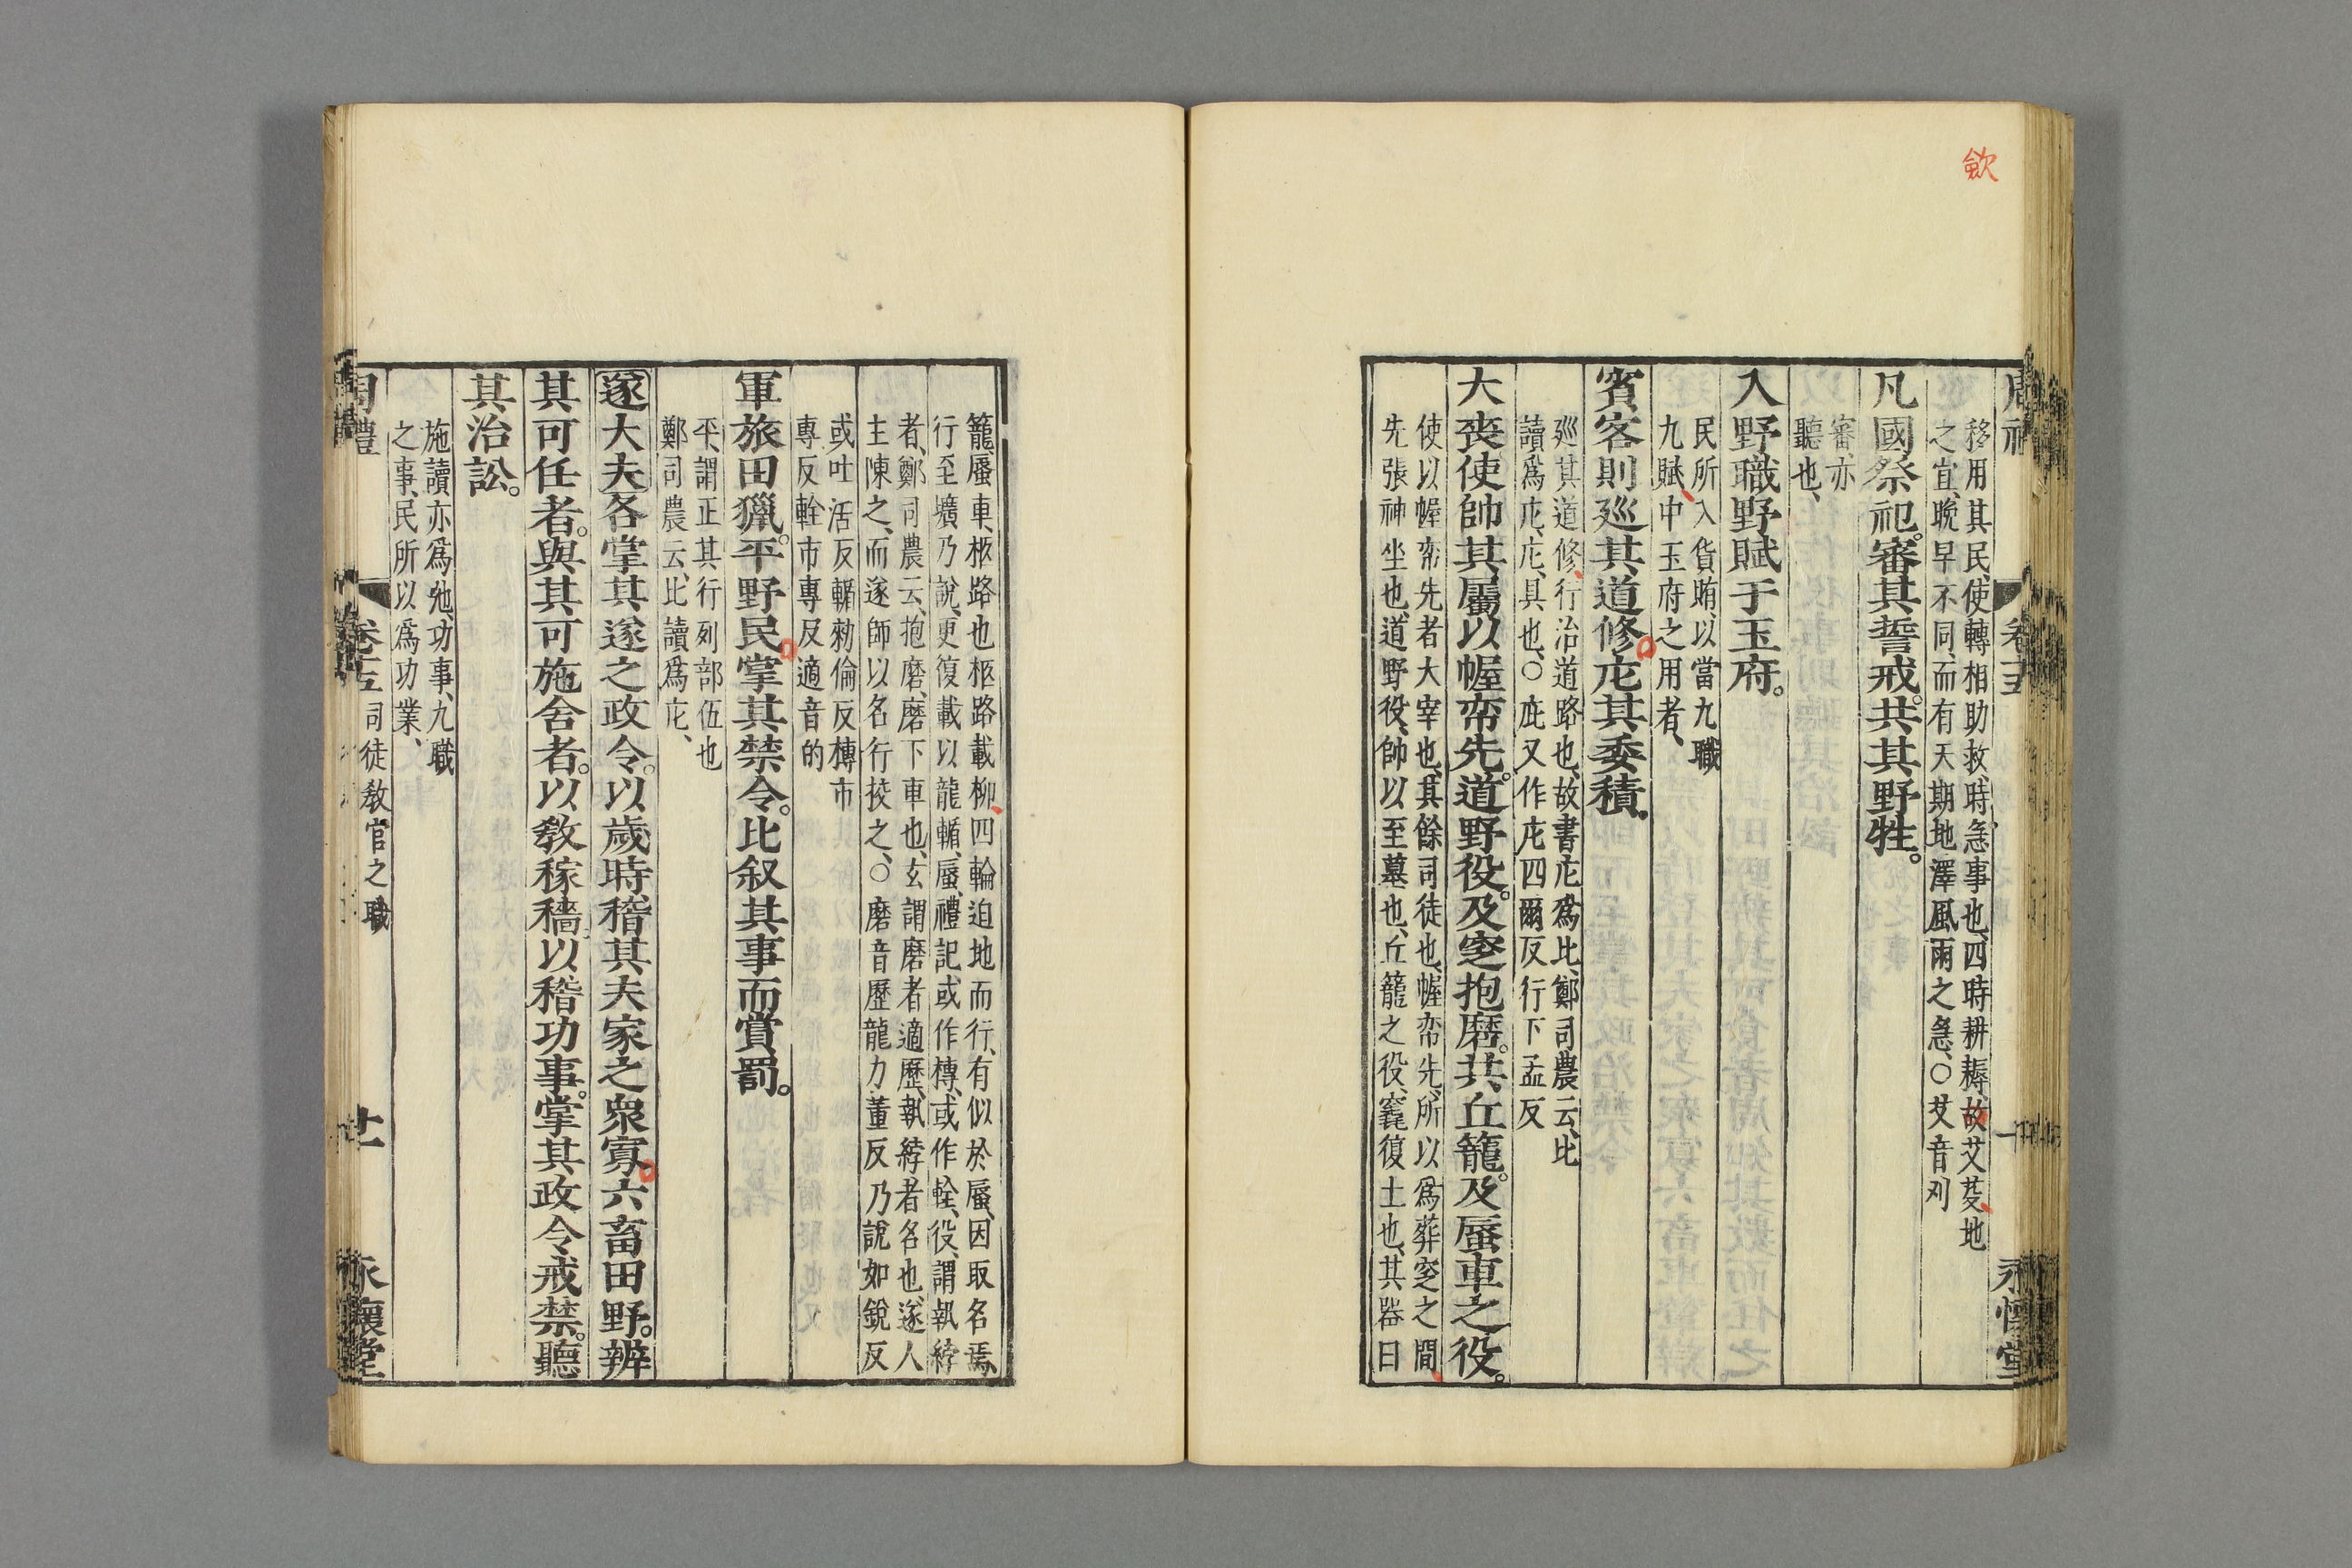 歛
移用其民、使轉相助救、時急事也、四時耕耨、故艾芟地
之宜、晩早不同、而有天期地澤風雨之急、○艾音刈
凡國祭祀。審其誓戒。共其野牲。
審、亦
聽也、
入野職野賦于玉府。
民所入貨賄、以當九職
九賦、中玉府之用者、
賓客則廵其道修庀其委積、
廵其道修、行治道路也、故書庀爲比、鄭司農云、比
讀爲庀、庀、具也、○庇又作庀四爾反行下孟反
大喪使帥其屬以幄帟先。道野役。及窆抱磨。共丘籠。及蜃車之役。
使以幄帟先者大宰也、其餘司徒也、幄帟先、所以爲葬窆之間、
先張神坐也、道野役、帥以至墓也、丘籠之役、窆復土也、其器曰
籠、蜃車、柩路也柩路載柳、四輪迫地而行、有似於蜃、因取名焉、
行至壙乃說、更復載以龍輴、蜃、禮記、或作槫、或作輇、役、謂執綍
者、鄭司農云、抱磨、磨下車也、玄謂磨者適歷、執綍者名也、遂人
主陳之、而遂師以名行挍之、○磨音歷龍力董反乃說如銳反
或吐活反輴勑倫反槫市
專反輇市專反適音的
軍旅田獵。平野民掌其禁令。比叙其事而賞罰。
平、謂正其行列部伍也
鄭司農云、比讀爲庀、
遂大夫各掌其遂之政令。以歲時稽其夫家之衆寡六畜田野。辨
其可任者。與其可施舍者。以敎稼穡以稽功事。掌其政令戒禁。聽
其治訟。
施讀亦爲弛、功事、九職
之事、民所以爲功業、
周禮 卷十五 司徒敎官之職 十一 永懷堂